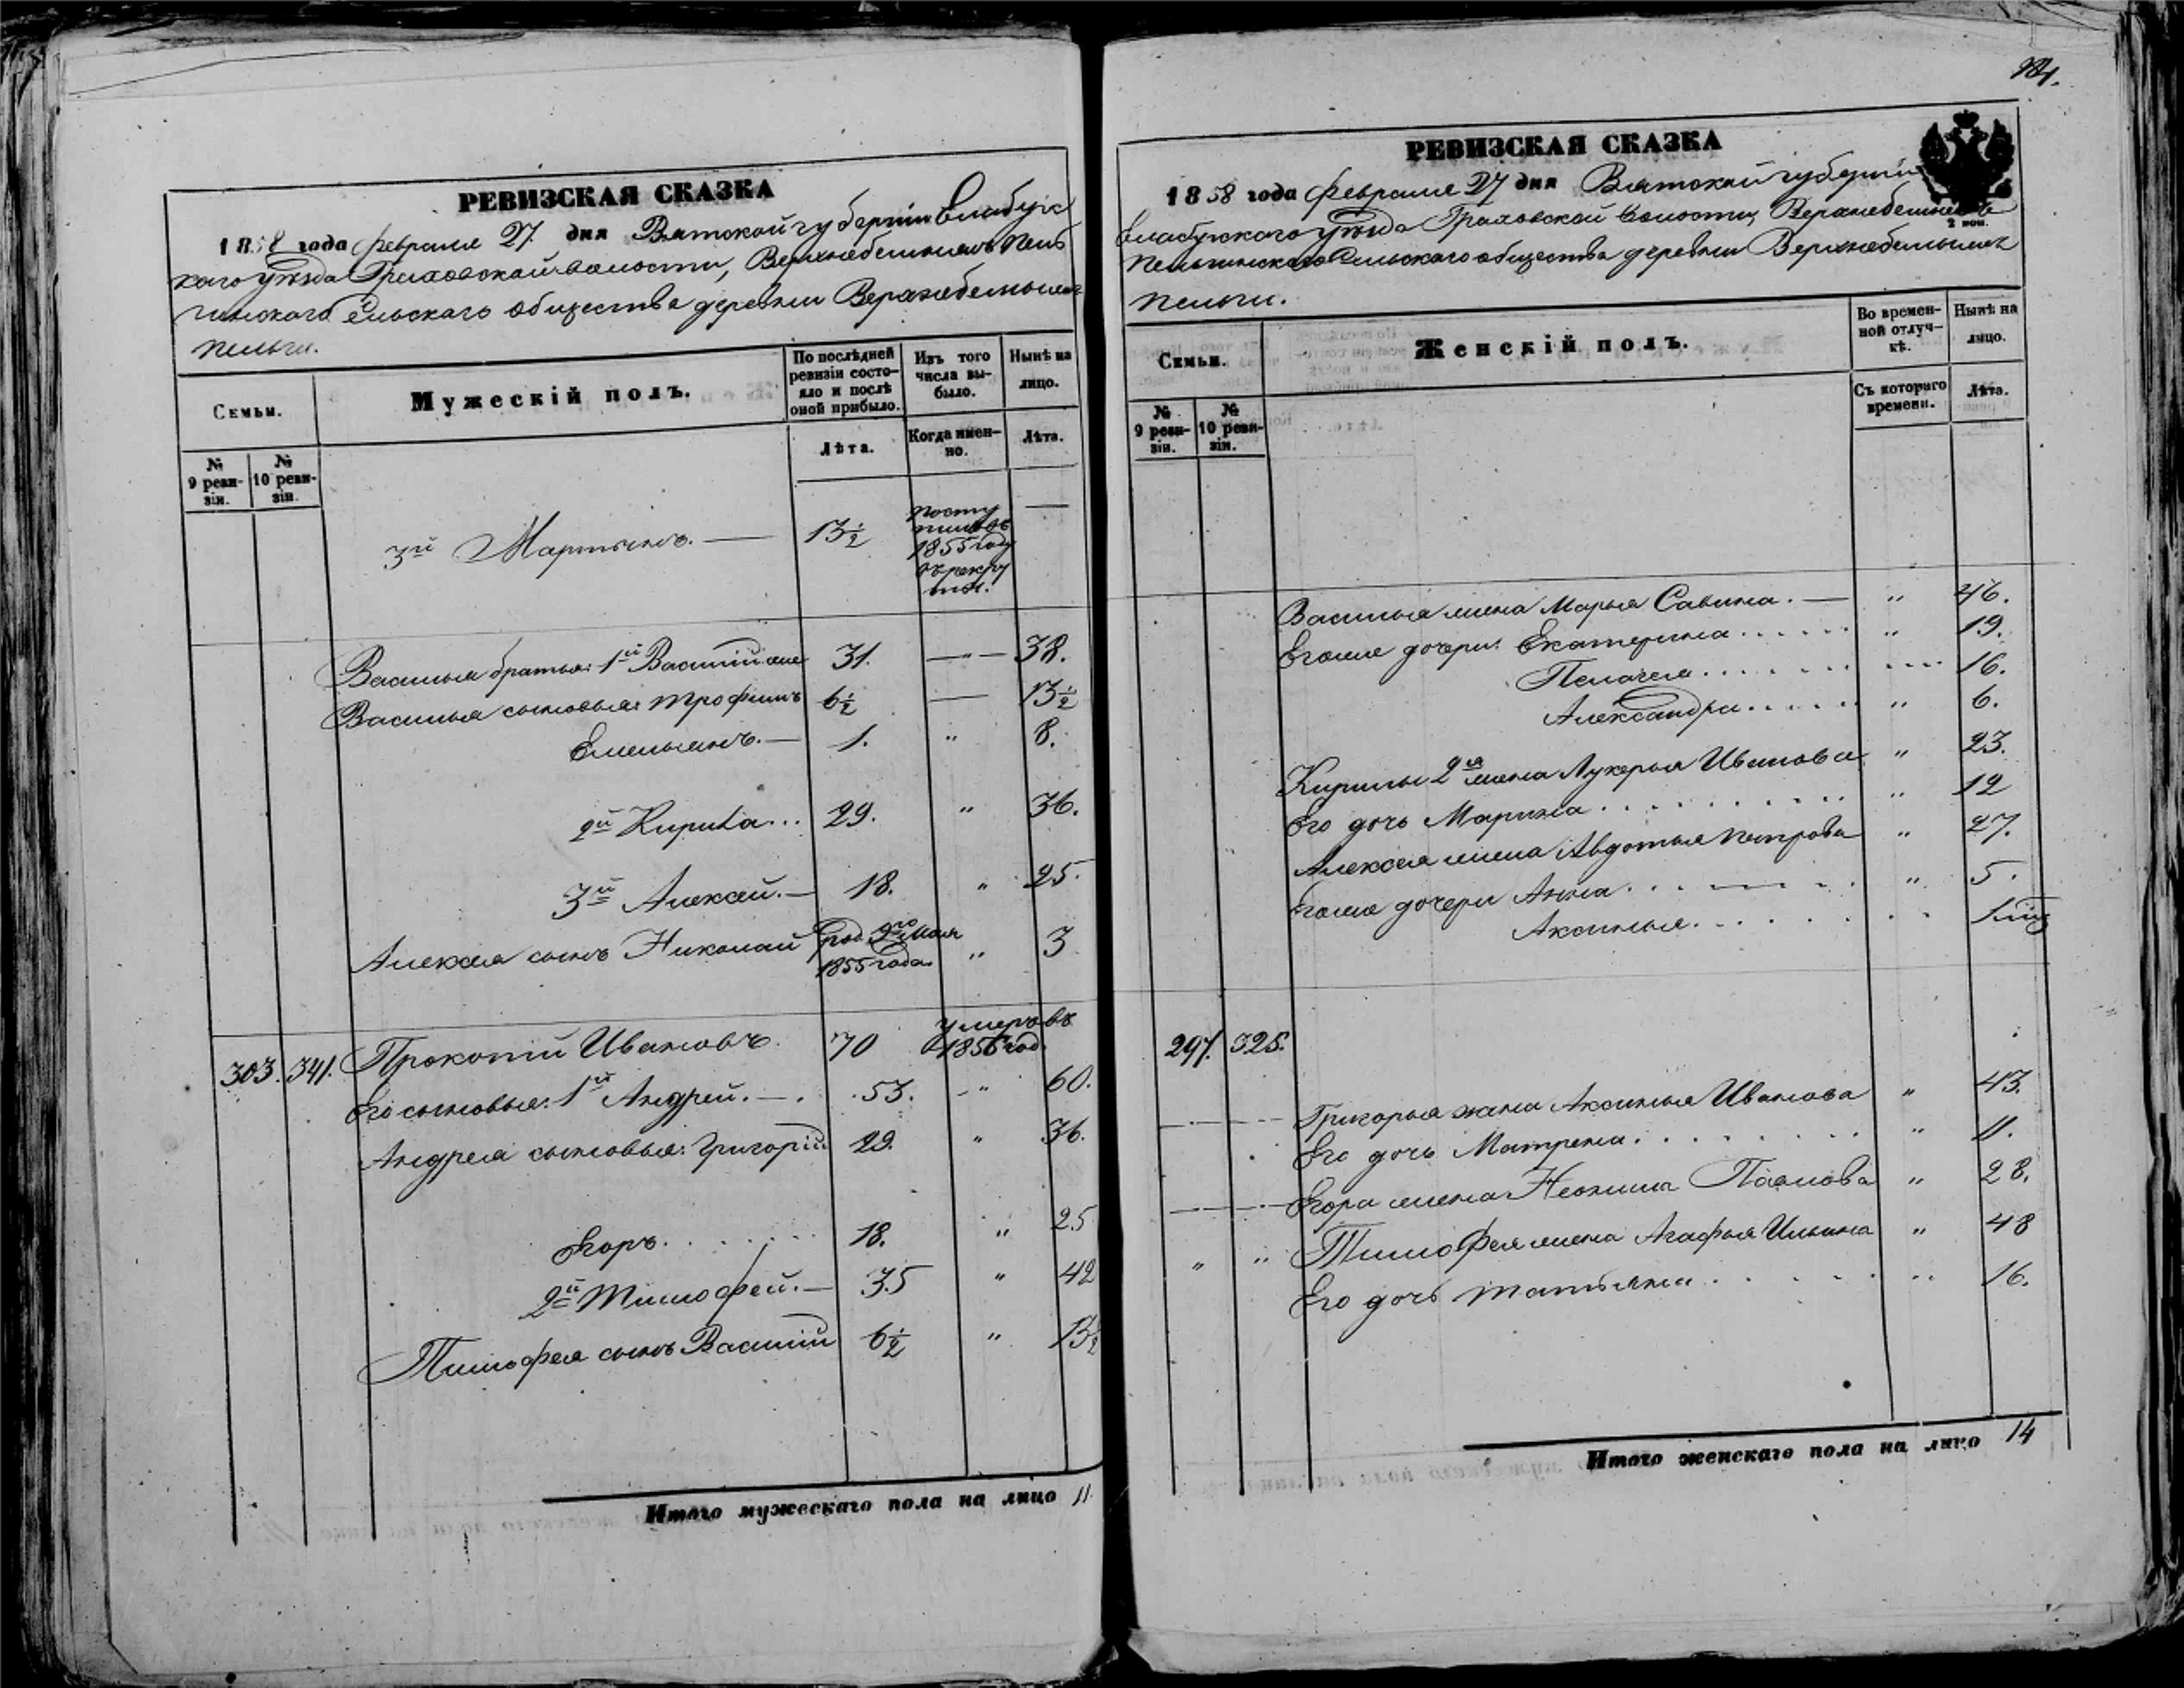 РЕВИЗСКАЯ СКАЗКА
1858 года февраля 27 дня Вятской губерніи Елабужс
каго уѣзда Граховской волости, Верхнебемыжъ Пель
гинскаго Сельскаго общества деревни Верхнебемыжъ
пельги.
Семьи.
Мужескій полъ.
По послѣдней ревизіи состояло и послѣ оной прибыло.
Изъ того числа выбыло.
Нынѣ на лицо.
№ 9 ревизіи.
№ 10 ревизіи.
Лѣта.
Когда именно.
Лѣта.
3й Мартынъ. — 13½ посту пилъ въ 1855 году въ рекру ты. —
Василья братья: 1й Василій же 31. —"— 38.
Василья сыновья: Трофимъ 6½ — 13½
Емельянъ. — 1. " 8.
2й Кирила... 29. " 36.
3й Алексей. — 18. " 25.
Алексея сынъ Николай род. 9го Мая 1855 года " 3
303. 341. Прокопій Ивановъ. 70 умеръ въ 1856 год.
Его сыновья: 1й Андрей. — . 53. " 60.
Андрея сыновья: Григорій 29. " 36.
Егоръ. . . . . . . 18. " 25
2й Тимофей. — 35 " 42
Тимофея сынъ Василій 6½ " 13½
Итого мужескаго пола на лицо 11
РЕВИЗСКАЯ СКАЗКА
1858 года февраля 27 дня Вятской губерніи
Елабужскаго уѣзда Граховской волости, Верхнебемыжъ
2 коп.
Пельгинскаго Сельскаго общества деревни Верхнебемыжъ
пельги.
Семьи.
Женскій полъ.
Во временной отлучкѣ.
Нынѣ на лицо.
№ 9 ревизіи.
№ 10 ревизіи.
Съ котораго времени.
Лѣта.
Василья жена Марья Савина. — " 46.
Егоже дочери: Екатерина . . . . . . " 19.
Пелагея . . . . . . . . . . . 16.
Александра . . . . . . " 6.
Кирилы 2я жена Лукерья Иванова " 23.
Его дочь Марина . . . . . . . . . . " 12
Алексея жена Авдотья Петрова " 27.
Егоже дочери Анна . . . . . . . " 5.
Аксинья. . . . . . . . 1 мѣс
297. 325.
Григорья жена Аксинья Иванова " 43.
Его дочь Матрена . . . . . . . . " 11.
Егора жена Неонила Павлова " 28.
" " Тимофея жена Агафья Ильина " 48
Его дочь Татьяна . . . . . . " 16.
Итого женскаго пола на лицо 14